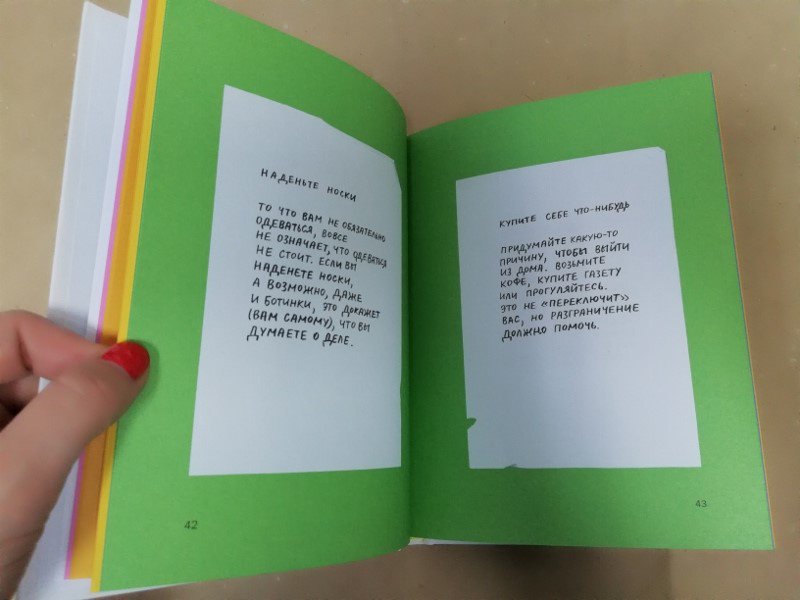 НАДЕНЬТЕ НОСКИ
ТО ЧТО ВАМ НЕ ОБЯЗАТЕЛЬНО
ОДЕВАТЬСЯ, ВОВСЕ
НЕ ОЗНАЧАЕТ, ЧТО ОДЕВАТЬСЯ
НЕ СТОИТ. ЕСЛИ ВЫ
НАДЕНЕТЕ НОСКИ,
А ВОЗМОЖНО, ДАЖЕ
И БОТИНКИ, ЭТО ДОКАЖЕТ
(ВАМ САМОМУ), ЧТО ВЫ
ДУМАЕТЕ О ДЕЛЕ.
42
КУПИТЕ СЕБЕ ЧТО-НИБУДЬ
ПРИДУМАЙТЕ КАКУЮ-ТО
ПРИЧИНУ, ЧТОБЫ ВЫЙТИ
ИЗ ДОМА. ВОЗЬМИТЕ
КОФЕ, КУПИТЕ ГАЗЕТУ
ИЛИ ПРОГУЛЯЙТЕСЬ.
ЭТО НЕ «ПЕРЕКЛЮЧИТ»
ВАС, НО РАЗГРАНИЧЕНИЕ
ДОЛЖНО ПОМОЧЬ.
43